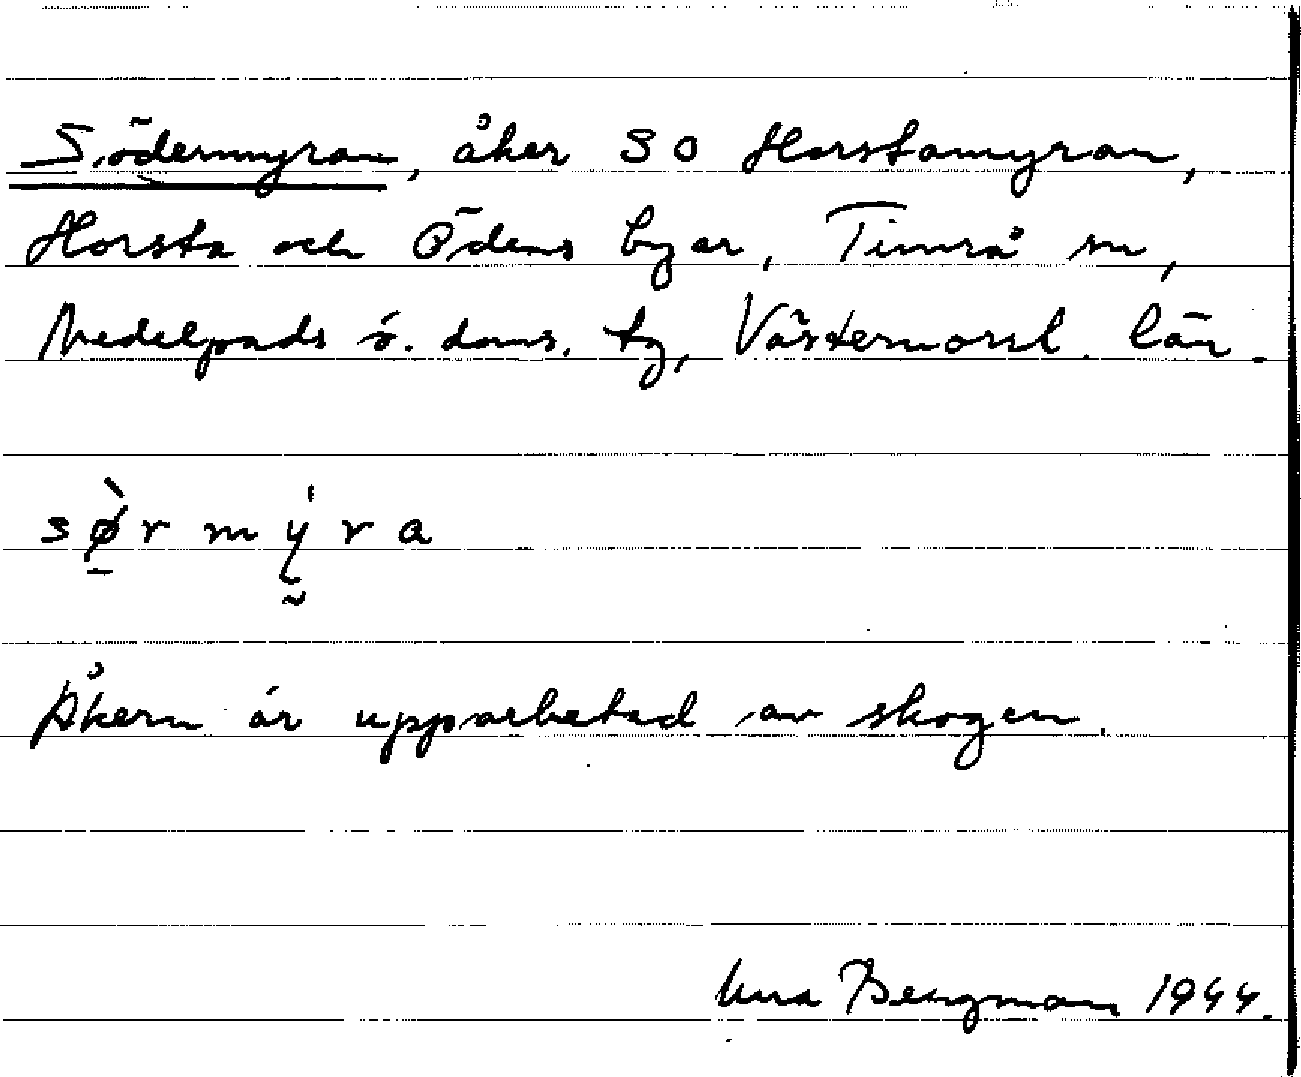 Södermyran, åker SO Horstamyran,
Horsta och Ödens byar, Timrå sn,
Medelpads ö. doms. tg, Västernorrl. län.
sø̀rmýra
Åkern är upparbetad av skogen.
Bergman 1944.